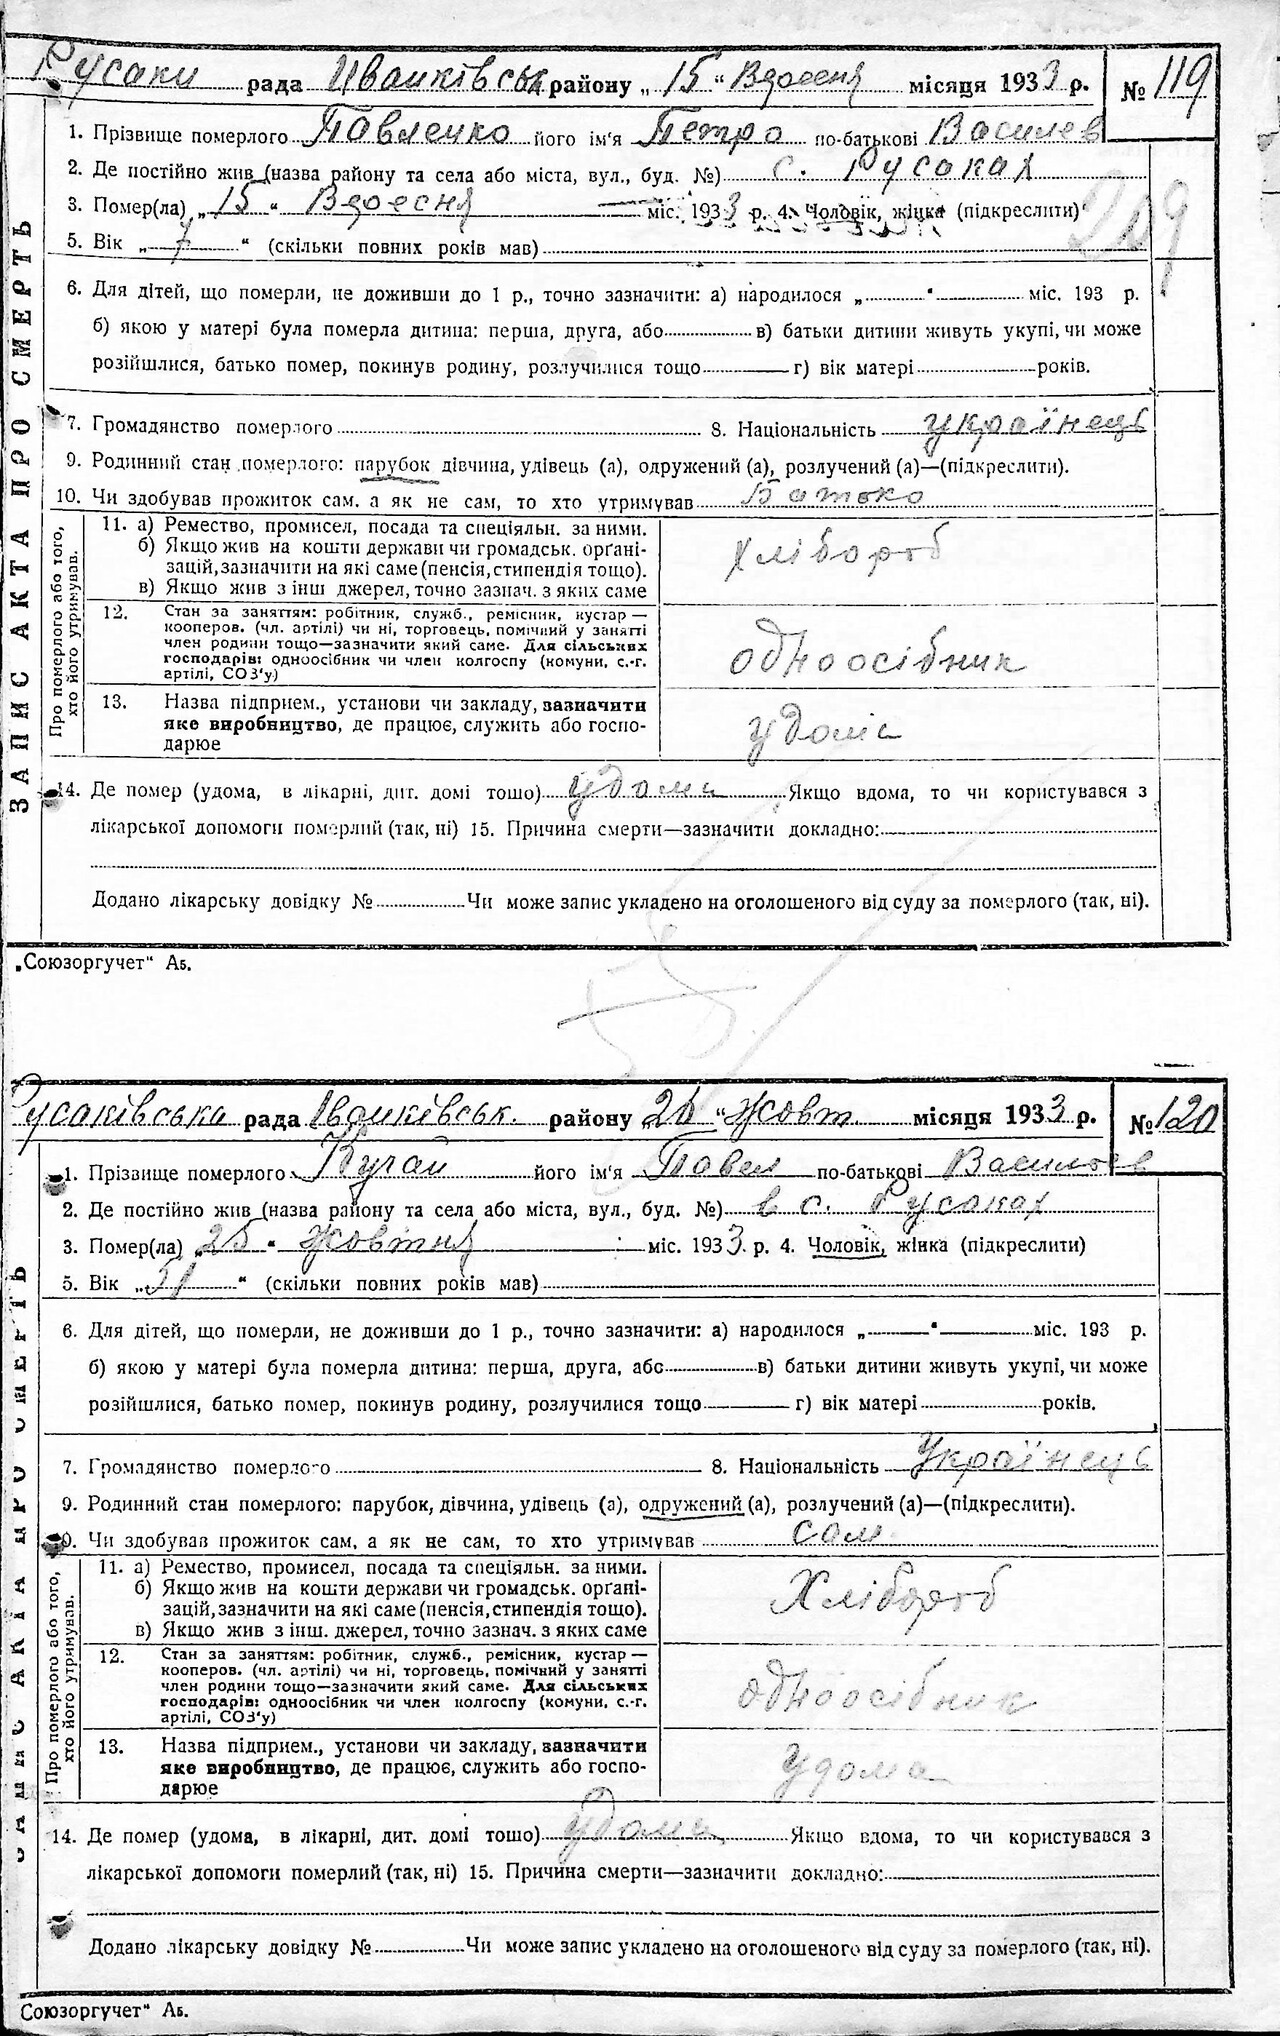 Русаки рада Иванківськ району „15“ Вересня місяця 1933 р. № 119
1. Прізвище померлого Павленко його ім'я Петро по-батькові Василев
2. Де постійно жив (назва району та села або міста, вул., буд. №) с. Русаках
3. Помер(ла) „15“ Вересня міс. 1933 р. 4. Чоловік, жінка (підкреслити)
209
5. Вік „7“ (скільки повних років мав)
6. Для дітей, що померли, не доживши до 1 р., точно зазначити: а) народилося „ “ міс. 193 р.
б) якою у матері була померла дитина: перша, друга, або в) батьки дитини живуть укупі, чи може
розійшлися, батько помер, покинув родину, розлучилися тощо г) вік матері років.
7. Громадянство померлого 8. Національність українець
9. Родинний стан померлого: парубок дівчина, удівець (а), одружений (а), розлучений (а)—(підкреслити).
10. Чи здобував прожиток сам, а як не сам, то хто утримував Батько
Про померлого або того, хто його утримував.
11. а) Ремество, промисел, посада та спеціяльн. за ними.
б) Якщо жив на кошти держави чи громадськ. орґані-
зацій, зазначити на які саме (пенсія, стипендія тощо).
в) Якщо жив з інш джерел, точно зазнач. з яких саме
хлібороб
12. Стан за заняттям: робітник, служб., ремісник, кустар —
кооперов. (чл. артілі) чи ні, торговець, помічний у занятті
член родини тощо—зазначити який саме. Для сільських
господарів: одноосібник чи член колгоспу (комуни, с.-г.
артілі, СОЗ'у)
одноосібник
13. Назва підприєм., установи чи закладу, зазначити
яке виробництво, де працює, служить або госпо-
дарює
удома
14. Де помер (удома, в лікарні, дит. домі тошо) удома Якщо вдома, то чи користувався з
лікарської допомоги померлий (так, ні) 15. Причина смерти—зазначити докладно:
Додано лікарську довідку № Чи може запис укладено на оголошеного від суду за померлого (так, ні).
ЗАПИС АКТА ПРО СМЕРТЬ
„Союзоргучет“ Аб.
Русаківська рада Іванківськ. району 26 “ Жовт. місяця 1933 р. № 120
1. Прізвище померлого Кугай його ім'я Павел по-батькові Васильев
2. Де постійно жив (назва району та села або міста, вул., буд. №) в с. Русаках
3. Помер(ла) „25“ жовтня міс. 1933 р. 4. Чоловік, жінка (підкреслити)
5. Вік „51“ (скільки повних років мав)
6. Для дітей, що померли, не доживши до 1 р., точно зазначити: а) народилося „ “ міс. 193 р.
б) якою у матері була померла дитина: перша, друга, або в) батьки дитини живуть укупі, чи може
розійшлися, батько помер, покинув родину, розлучилися тощо г) вік матері років.
7. Громадянство померлого 8. Національність Українець
9. Родинний стан померлого: парубок, дівчина, удівець (а), одружений (а), розлучений (а)—(підкреслити).
10. Чи здобував прожиток сам, а як не сам, то хто утримував сам
Про померлого або того, хто його утримував.
11. а) Ремество, промисел, посада та спеціяльн. за ними.
б) Якщо жив на кошти держави чи громадськ. орґані-
зацій, зазначити на які саме (пенсія, стипендія тощо).
в) Якщо жив з інш. джерел, точно зазнач. з яких саме
Хлібороб
12. Стан за заняттям: робітник, служб., ремісник, кустар —
кооперов. (чл. артілі) чи ні, торговець, помічний у занятті
член родини тощо—зазначити який саме. Для сільських
господарів: одноосібник чи член колгоспу (комуни, с.-г.
артілі, СОЗ'у)
одноосібник
13. Назва підприєм., установи чи закладу, зазначити
яке виробництво, де працює, служить або госпо-
дарює
удома
14. Де помер (удома, в лікарні, дит. домі тошо) удома Якщо вдома, то чи користувався з
лікарської допомоги померлий (так, ні) 15. Причина смерти—зазначити докладно:
Додано лікарську довідку № Чи може запис укладено на оголошеного від суду за померлого (так, ні).
ЗАПИС АКТА ПРО СМЕРТЬ
Союзоргучет“ Аб.